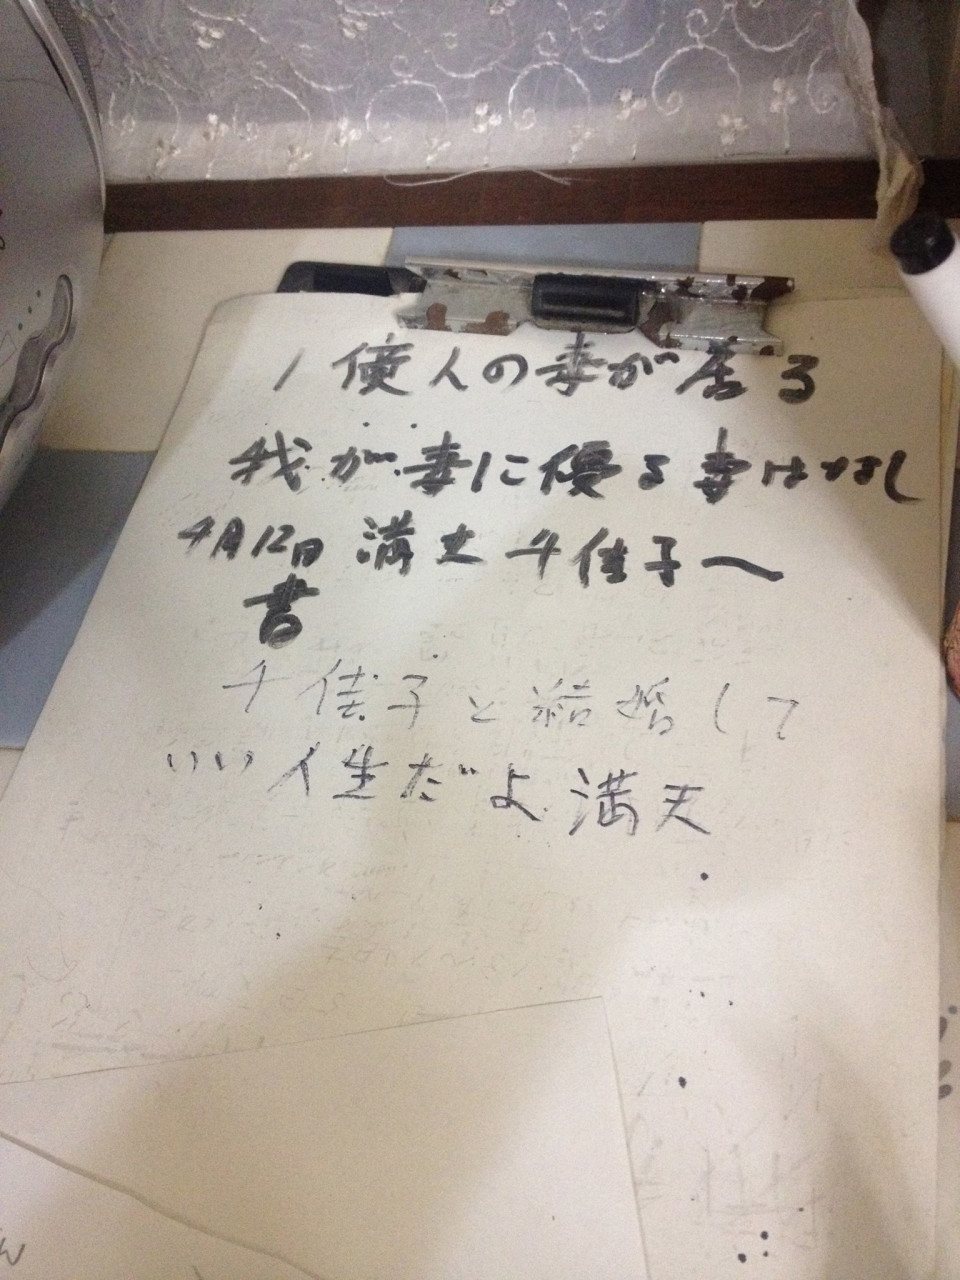 1億人の妻が居る
我が妻に優る妻はなし
4月12日 満丈 千佳子へ
書
千佳子と結婚して
いい人生だよ 満丈